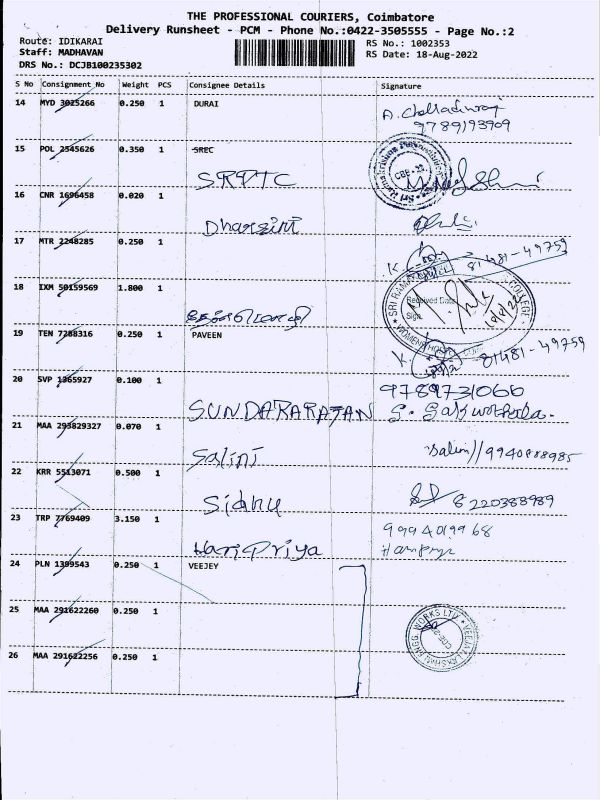 THE PROFESSIONAL COURIERS, Coimbatore
Delivery Runsheet - PCM - Phone No.:0422-3505555 - Page No.:2
Route: IDIKARAI RS No.: 1002353
Staff: MADHAVAN RS Date: 18-Aug-2022
DRS No.: DCJB100235302
S No Consignment No Weight PCS Consignee Details Signature
14 MYD 3025266 0.250 1 DURAI
9789193909
15 POL 2545626 0.350 1 SREC
16 CNR 1696458 0.020 1
Dharsini
17 MTR 2248285 0.250 1
K. 81481-49759
18 IXM 50159569 1.800 1
SRI COLLEGE
Received Date
Sign.
19 TEN 7288316 0.250 1 PAVEEN
K. 81481-49759
20 SVP 1365927 0.100 1
9789731066
SUNDARARAJAN
21 MAA 293829327 0.070 1
Salini 9940888985
22 KRR 5513071 0.500 1
Sidhu 8220388989
23 TRP 7769409 3.150 1
9994019968
Hari Priya
24 PLN 1399543 0.250 1 VEEJEY
25 MAA 291622260 0.250 1
ENGG. WORKS LTD
26 MAA 291622256 0.250 1